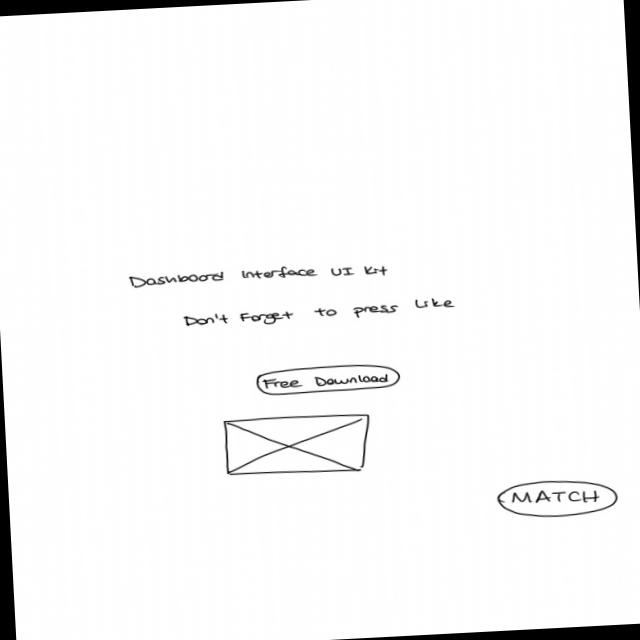 Dashboard Interface UI Kit
Don't Forget to press Like
Free Download
MATCH